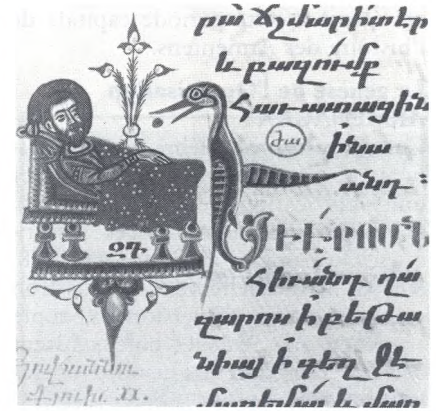 րա՛ ճշմարիտ էր
և բազումք
հաւատացին
ժա
ինա
անդ ։
ՋԴ
ԵՒ ԷՐ ՈՄՆ
հիւանդ ղա
զարոս ի բեթա
նիայ ի գեղ ջէ
մարեմայ և մար
Յովհաննու
Գլուխ.